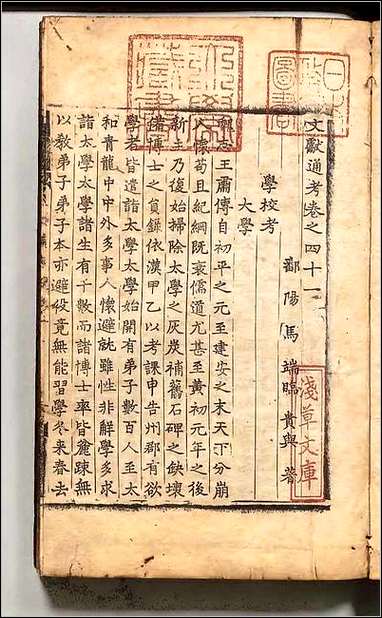 文獻通考卷之四十一
鄱陽馬端臨貴與著
學校考
大學
魏志王肅傳自初平之元至建安之末天下分崩
人懷苟且紀綱既衰儒道尤甚至黃初元年之後
新主乃復始掃除太學之灰炭補舊石碑之缺壞
備博士之員錄依漢甲乙以考課申告州郡有欲
學者皆遣詣太學太學始開有弟子數百人至太
和青龍中中外多事人懷避就雖性非解學多求
詣太學太學諸生有千數而諸博士率皆麄踈無
以敎弟子弟子本亦避役竟無能習學冬來春去
淺草文庫
圖書